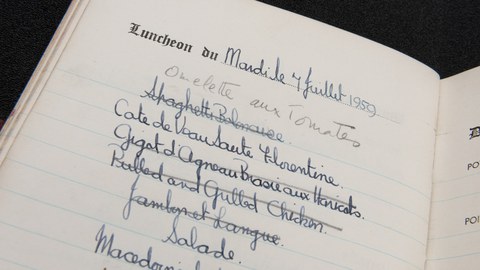 Luncheon du Mardi le 7 Juillet 1959
Omelette aux Tomates
Spaghetti Bolonaise.
Cote de Veau Sauté Florentine.
Gigot d'Agneau Braisé aux Haricots.
Boiled and Grilled Chicken.
Jambon et Langue.
Salade.
PO
POI